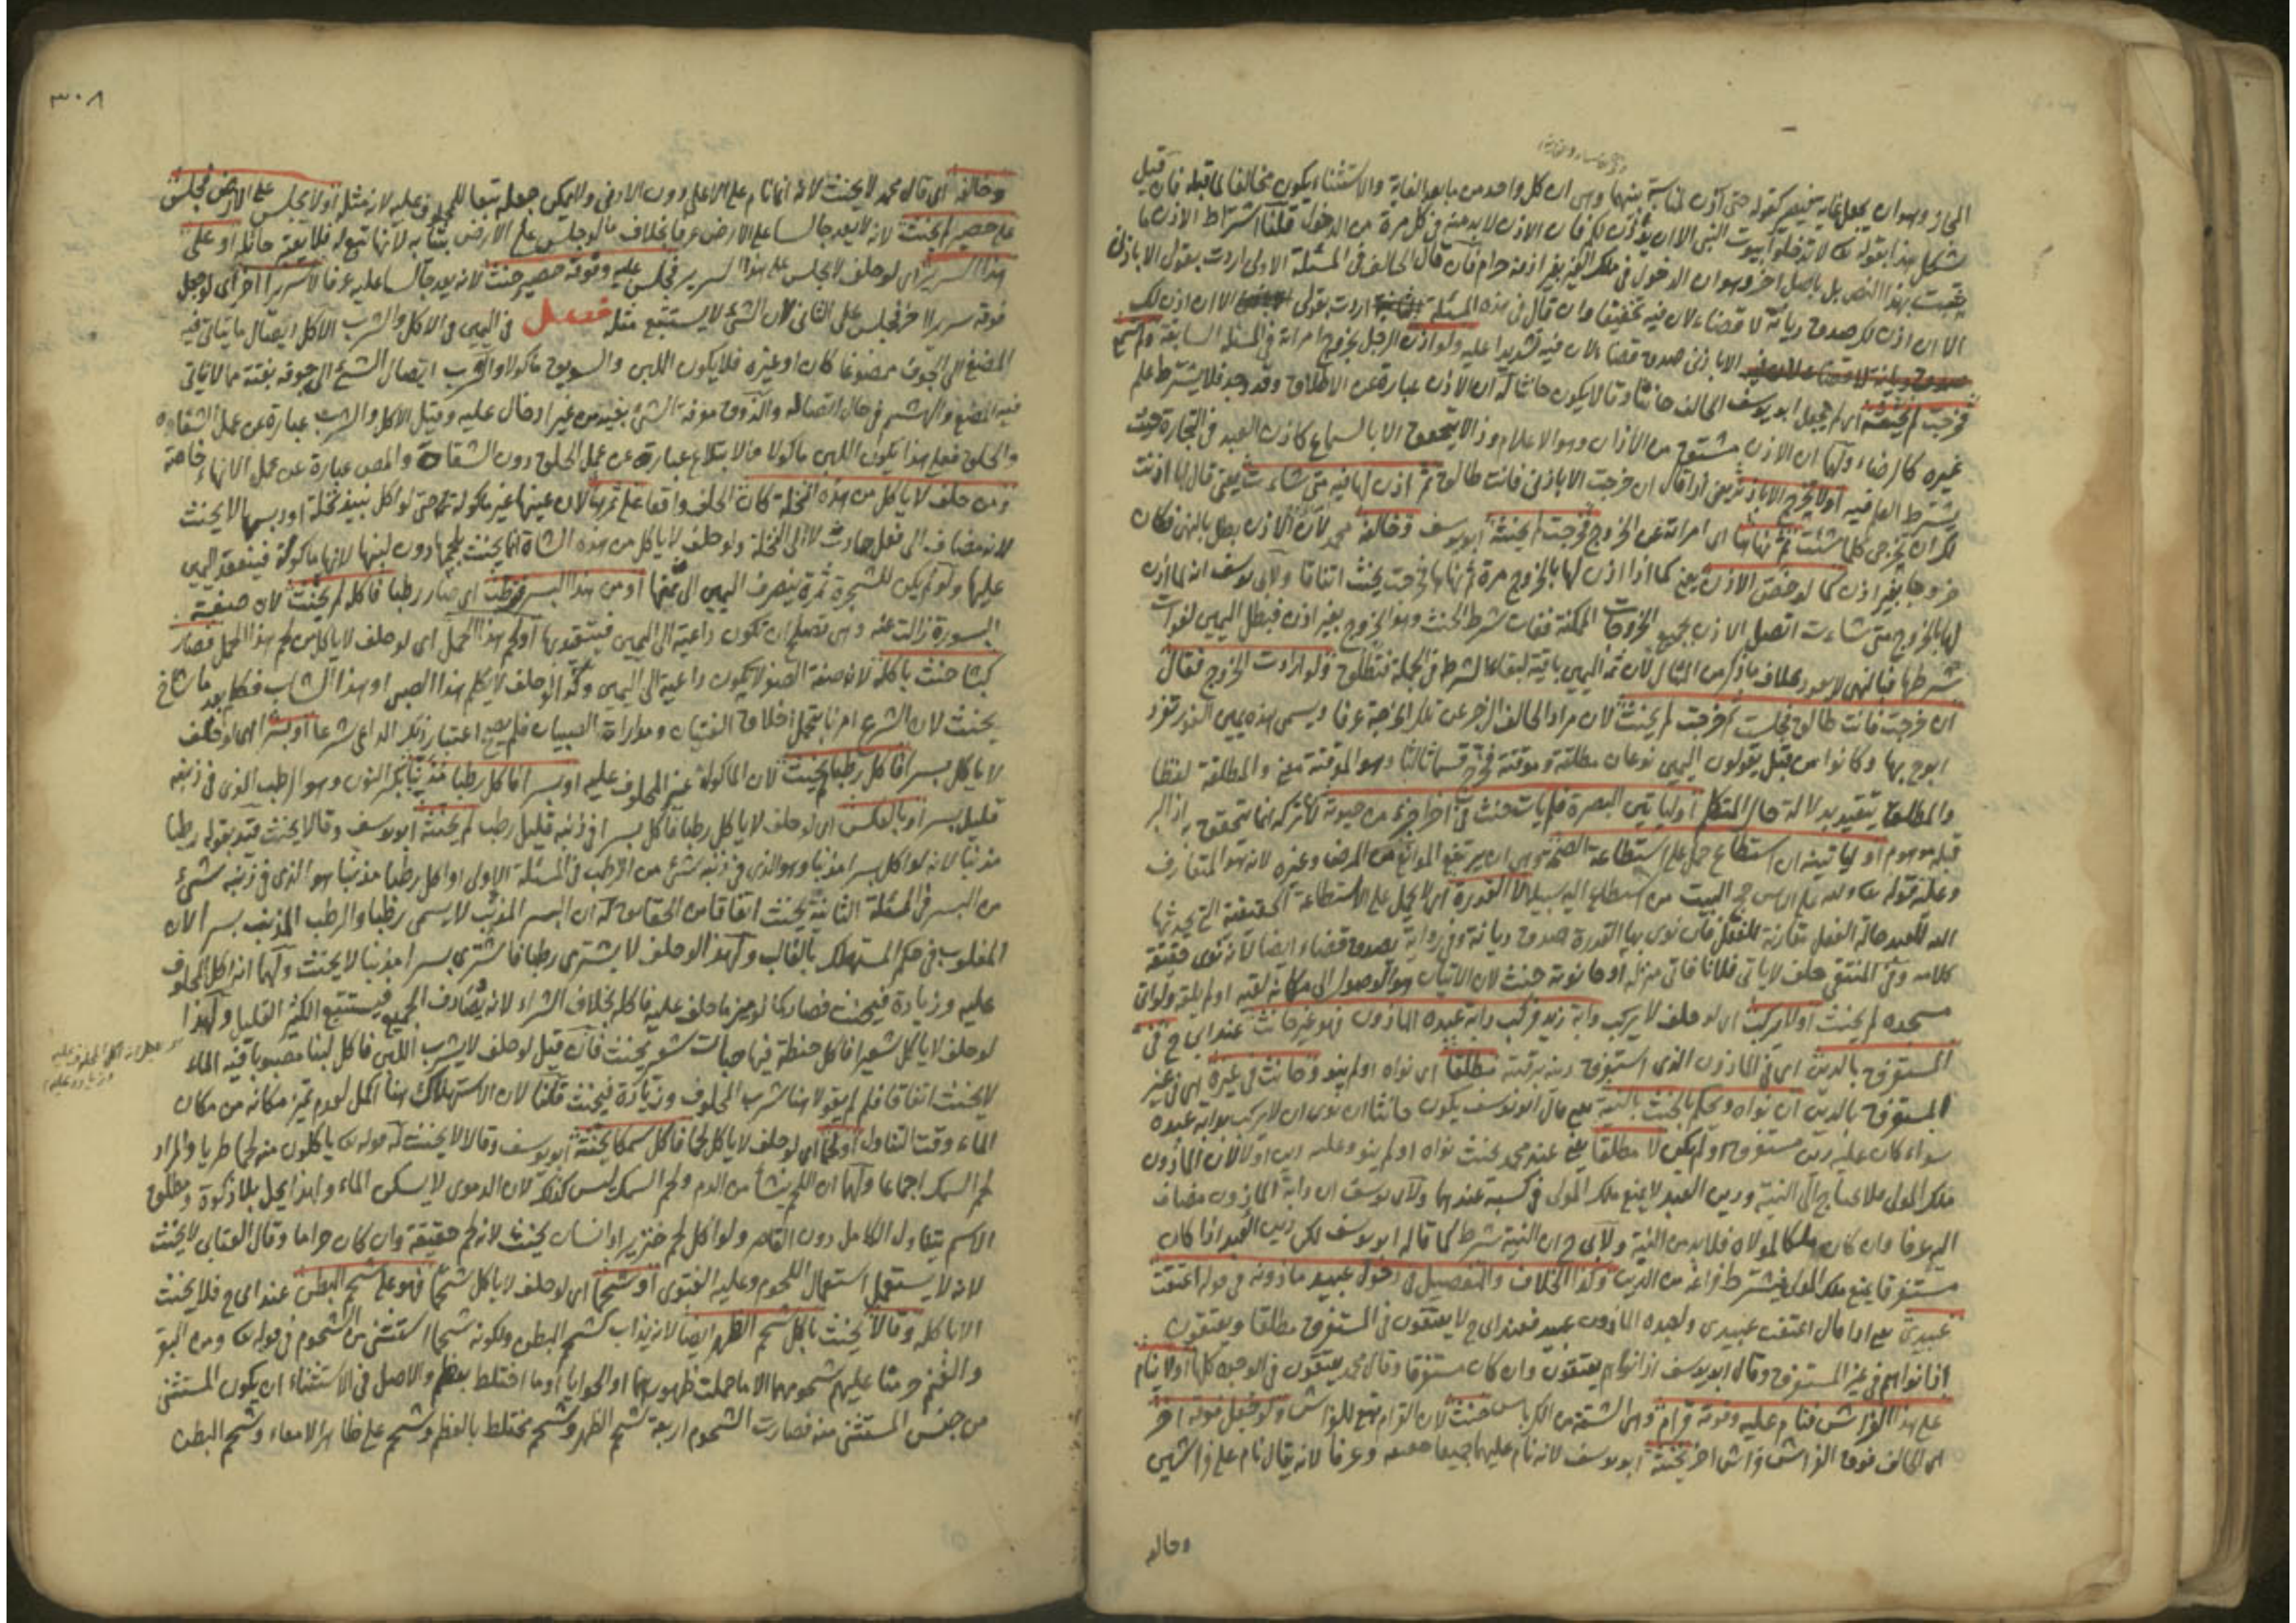 المجاز وهو ان يجعل غاية فيصير كقوله حتى آذن لمناسبة بينهما وهى ان كل واحد من ما بعد الغاية والاستثناء يكون مخالفا لما قبله فان قيل
يشكل هذا بقوله تعا لا تدخلوا بيوت النبى الا ان يؤذن لكم فان الاذن لابد منه فى كل مرة من الدخول قلنا اشتراط الاذن ما
يثبت بهذا النص بل باصل اخر وهو ان الدخول فى ملك الغير بغير اذنه حرام فان قال الحالف فى المسئلة الاولى اردت بقولى الا باذنى
الا ان اذن لك صدق ديانة لا قضاء لان فيه تخفيفا وان قال فى هذه المسئلة اردت بقولى الا ان اذن لك
الا باذنى صدق قضاء لان فيه تشديدا عليه ولو اذن الرجل بخروج امراته فى المسئلة السابقة ولم تسمع
فخرجت لم يحنثه اى لم يجعل ابو يوسف الحالف حانثا وقالا يكون حانثا له ان الاذن عبارة عن الاطلاق وقد وجد فلا يشترط علم
غيره كالرضاء ولهما ان الاذن مشتق من الاذان وهو الاعلام وذا لا يتحقق الا بالسماع كاذن العبد فى التجارة حيث
يشترط العلم فيه او لا تخرج الا باذنى يعنى اذا قال ان خرجت الا باذنى فانت طالق ثم اذن لها فيه متى شاءت يعنى قال لها اذنت
لك ان تخرجى كلما شئت ثم نهاها اى امراته عن الخروج فخرجت لم يحنثه ابو يوسف وخالفه محمد لان الاذن بطل بالنهى فكان
خروجها بغير اذن كما لو خص الاذن يعنى كما اذا اذن لها بالخروج مرة ثم نهاها فخرجت يحنث اتفاقا ولابى يوسف انه لما اذن
لها بالخروج متى شاءت اتصل الاذن بجميع الخرجات الممكنة ففات شرط الحنث وهو الخروج بغير اذن فبطل اليمين لفوات
شرطها فبالنهى لا يعود بخلاف ما ذكر من المثال لان ثمة اليمين باقية لبقاء الشرط فى الجملة فتطلق ولو ارادت الخروج فقال
ان خرجت فانت طالق فجلست ثم خرجت لم يحنث لان مراد الحالف الزجر عن تلك الخرجة عرفا ويسمى هذه يمين الفور تفرد
ابو ح بها وكانوا من قبل يقولون اليمين نوعان مطلقة وموقتة فخرج قسما ثالثا وهو الموقتة معنى والمطلقة لفظا
والمطلق يتقيد بدلالة حال المتكلم او ليأتين البصرة فلم يأت حنث فى اخر جزء من حيوته لان تركه انما يتحقق به اذ البر
قبله موهوم او لياتينه ان استطاع حمل على استطاعة الصحة وهى ان يرتفع الموانع من المرض وغيره لانه هو المتعارف
وعليه قوله تعا ولله على الناس حج البيت من استطاع اليه سبيلا لا القدرة اى لا يحمل على الاستطاعة الحقيقية التى يحدثها
الله للعبد حالة الفعل مقارنة للفعل فان نوى بها القدرة صدق ديانة وفى رواية يصدق قضاء ايضا لانه نوى حقيقة
كلامه وفى المنتقى حلف لا ياتى فلانا فاتى منزله او حانوته حنث لان الاتيان هو الوصول الى مكانه لقيه او لم يلق ولو اتى
مسجده لم يحنث او لا يركب اى لو حلف لا يركب دابة زيد فركب دابة عبده المأذون فهو غير حانث عند ابى ح فى
المستغرق بالدين اى فى المأذون الذى استغرق دينه رقبته مطلقا اى نواه او لم ينو وحانث فى غيره اى فى غير
المستغرق بالدين ان نواه ويحكم بالحنث بالنية يعنى قال ابو يوسف يكون حانثا ان نوى ان لا يركب دابة عبده
سواء كان عليه دين مستغرق او لم يكن لا مطلقا يعنى عند محمد يحنث نواه او لم ينو وعليه دين اولا لان المأذون
ملك المولى فلا يحتاج الى النية ودين العبد لا يمنع ملك المولى فى كسبه عندهما ولابى يوسف ان دابة المأذون مضاف
اليه عرفا وان كان ملكا لمولاه فلابد من النية ولابى ح ان النية شرط كما قاله ابو يوسف لكن دين العبد اذا كان
مستغرقا يمنع ملك المولى فيشترط فراغه من الدين وكذا الخلاف والتفصيل فى دخول عبيد ماذونه فى قوله اعتقت
عبيدى يعنى اذا قال اعتقت عبيدى ولعبده المأذون عبيد فعند ابى ح لا يعتقون فى المستغرق مطلقا ويعتقون
اذا نواهم فى غير المستغرق وقال ابو يوسف اذا نواهم يعتقون وان كان مستغرقا وقال محمد يعتقون فى الوجوه كلها او لا ينام
على هذا الفراش فنام عليه وفوقه قرام وهى الشقة من الكرباس حنث لان القرام تبع للفراش ولو جعل فوقه اخر
اى الحالف فوق الفراش فراش اخر يحنثه ابو يوسف لانه نام عليهما جميعا حقيقة وعرفا لانه يقال نام على فراشين
وخالفه
٣٠٨
وخالفه اى قال محمد لا يحنث لانه انما نام على الاعلى دون الادنى ولا يمكن جعله تبعا للمحلوف عليه لانه مثله او لا يجلس على الارض فجلس
على حصير لم يحنث لانه لا يعد جالسا على الارض عرفا بخلاف ما لو جلس على الارض بثيابه لانها تبع له فلا يعتبر حائلا او على
هذا السرير اى لو حلف لا يجلس على هذا السرير فجلس عليه وفوقه حصير حنث لانه يعد جالسا عليه عرفا لا سريرا اخر اى لو جعل
فوقه سريرا اخر فجلس على الثانى لان الشئ لا يستتبع مثله فصل فى اليمين فى الاكل والشرب الاكل ايصال ما يتأتى فيه
المضغ الى الجوف ممضوغا كان او غيره فلا يكون اللبن والسويق ماكولا والشرب ايصال الشئ الى جوفه بفيه مما لا يتاتى
فيه المضغ والهشم فى حال اتصاله والذوق معرفة الشئ بفيه من غير ادخال عليه وقيل الاكل والشرب عبارة عن عمل الشفاه
والحلق فعلى هذا يكون اللبن ماكولا والابتلاع عبارة عن عمل الحلق دون الشفاه والمص عبارة عن عمل اللهاء خاصة
ومن حلف لا ياكل من هذه النخلة كان الحلف واقعا على ثمرها لان عينها غير ماكولة حتى لو اكل نبيذ نخلة او دبسها لا يحنث
لانه مضاف الى فعل حادث لا الى النخلة ولو حلف لا ياكل من هذه الشاة انما يحنث بلحمها دون لبنها لانها ماكولة فينعقد اليمين
عليها ولو لم يكن للشجرة ثمرة ينصرف اليمين الى ثمنها او من هذا البسر فرطب اى صار رطبا فاكله لم يحنث لان صفة
البسورة زالت عنه وهى تصلح ان تكون داعية الى اليمين فيتقيد بها او لحم هذا الحمل اى لو حلف لا ياكل من لحم هذا الحمل فصار
كبشا حنث باكله لان صفة الصغر لا يكون داعية الى اليمين وكذا لو حلف لا يكلم هذا الصبى او هذا الشاب فكلم بعد ما شاخ
يحنث لان الشرع امرنا بتحمل اخلاق الفتيان ومداراة الصبيان فلم يصح اعتبار ذلك الداعى شرعا او بسرا اى لو حلف
لا ياكل بسرا فاكل رطبا لم يحنث لان الماكول غير المحلوف عليه او بسرا فاكل رطبا مذنبا بكسر النون وهو الرطب الذى فى ذنبه
قليل بسر او بالعكس اى لو حلف لا ياكل رطبا فاكل بسرا فى ذنبه قليل رطب لم يحنثه ابو يوسف وقالا يحنث قيد بقوله رطبا
مذنبا لانه لو اكل بسرا مذنبا وهو الذى فى ذنبه شئ من الرطب فى المسئلة الاولى او اكل رطبا مذنبا هو الذى فى ذنبه شئ
من البسر فى المسئلة الثانية يحنث اتفاقا من الحقائق له ان البسر المذنب لا يسمى رطبا والرطب المذنب بسرا لان
المغلوب فى حكم المستهلك بالغالب ولهذا لو حلف لا يشترى رطبا فاشترى بسرا مذنبا لا يحنث ولهما انه اكل المحلوف
عليه وزيادة فيحنث فصار كما لو ميز ما حلف عليه فاكله بخلاف الشراء لانه يصادف الجميع فيستتبع الكثير القليل ولهذا
لو حلف لا ياكل شعيرا فاكل حنطة فيها حبات شعير يحنث فان قيل لو حلف لا يشرب اللبن فاكل لبنا مصبوبا فيه الماء
لا يحنث اتفاقا فلم لم يقولا هنا شرب المحلوف وزيادة فيحنث قلنا لان الاستهلاك هنا اكمل لعدم تميز مكانه من مكان
الماء وقت التناول او لحما اى لو حلف لا ياكل لحما فاكل سمكا يحنثه ابو يوسف وقالا لا يحنث له قوله تعا ياكلون منه لحما طريا والمراد
لحم السمك اجماعا ولهما ان اللحم ينشأ من الدم ولحم السمك ليس كذلك لان الدموى لا يسكن الماء ولهذا يحل بلا ذكوة ومطلق
الاسم يتناول الكامل دون القاصر ولو اكل لحم خنزير او انسان يحنث لانه لحم حقيقة وان كان حراما وقال العتابى لا يحنث
لانه لا يستعمل استعمال اللحوم وعليه الفتوى او شحما اى لو حلف لا ياكل شحما فهو على شحم البطن عند ابى ح فلا يحنث
الا باكله وقالا يحنث باكل شحم الظهر ايضا لانه يذاب كشحم البطن ولكونه شحما استثنى من الشحوم فى قوله تعا ومن البقر
والغنم حرمنا عليهم شحومهما الا ما حملت ظهورهما او الحوايا او ما اختلط بعظم والاصل فى الاستثناء ان يكون المستثنى
من جنس المستثنى منه فصارت الشحوم اربعة شحم الظهر وشحم مختلط بالعظم وشحم على ظاهر الامعاء وشحم البطن